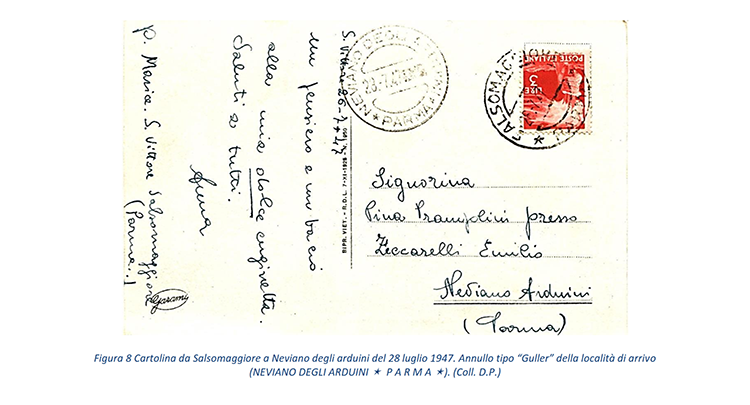 S. Vittore 26-7-47
un pensiero e un bacio
alla mia dolce cuginetta.
Saluti a tutti.
Anna
P. Maria. S. Vittore Salsomaggiore
(Parma.)
Garami
RIPR. VIET. - R.D.L. 7-XI-1925 - N. 1950
NEVIANO DEGLI ARDUINI
PARMA
28.7.47
SALSOMAGGIORE
POSTE ITALIANE
LIRE 3
Signorina
Pina Prampolini presso
Zeccarelli Emilio
Neviano Arduini
(Parma)
Figura 8 Cartolina da Salsomaggiore a Neviano degli arduini del 28 luglio 1947. Annullo tipo “Guller” della località di arrivo
(NEVIANO DEGLI ARDUINI ✶ P A R M A ✶). (Coll. D.P.)